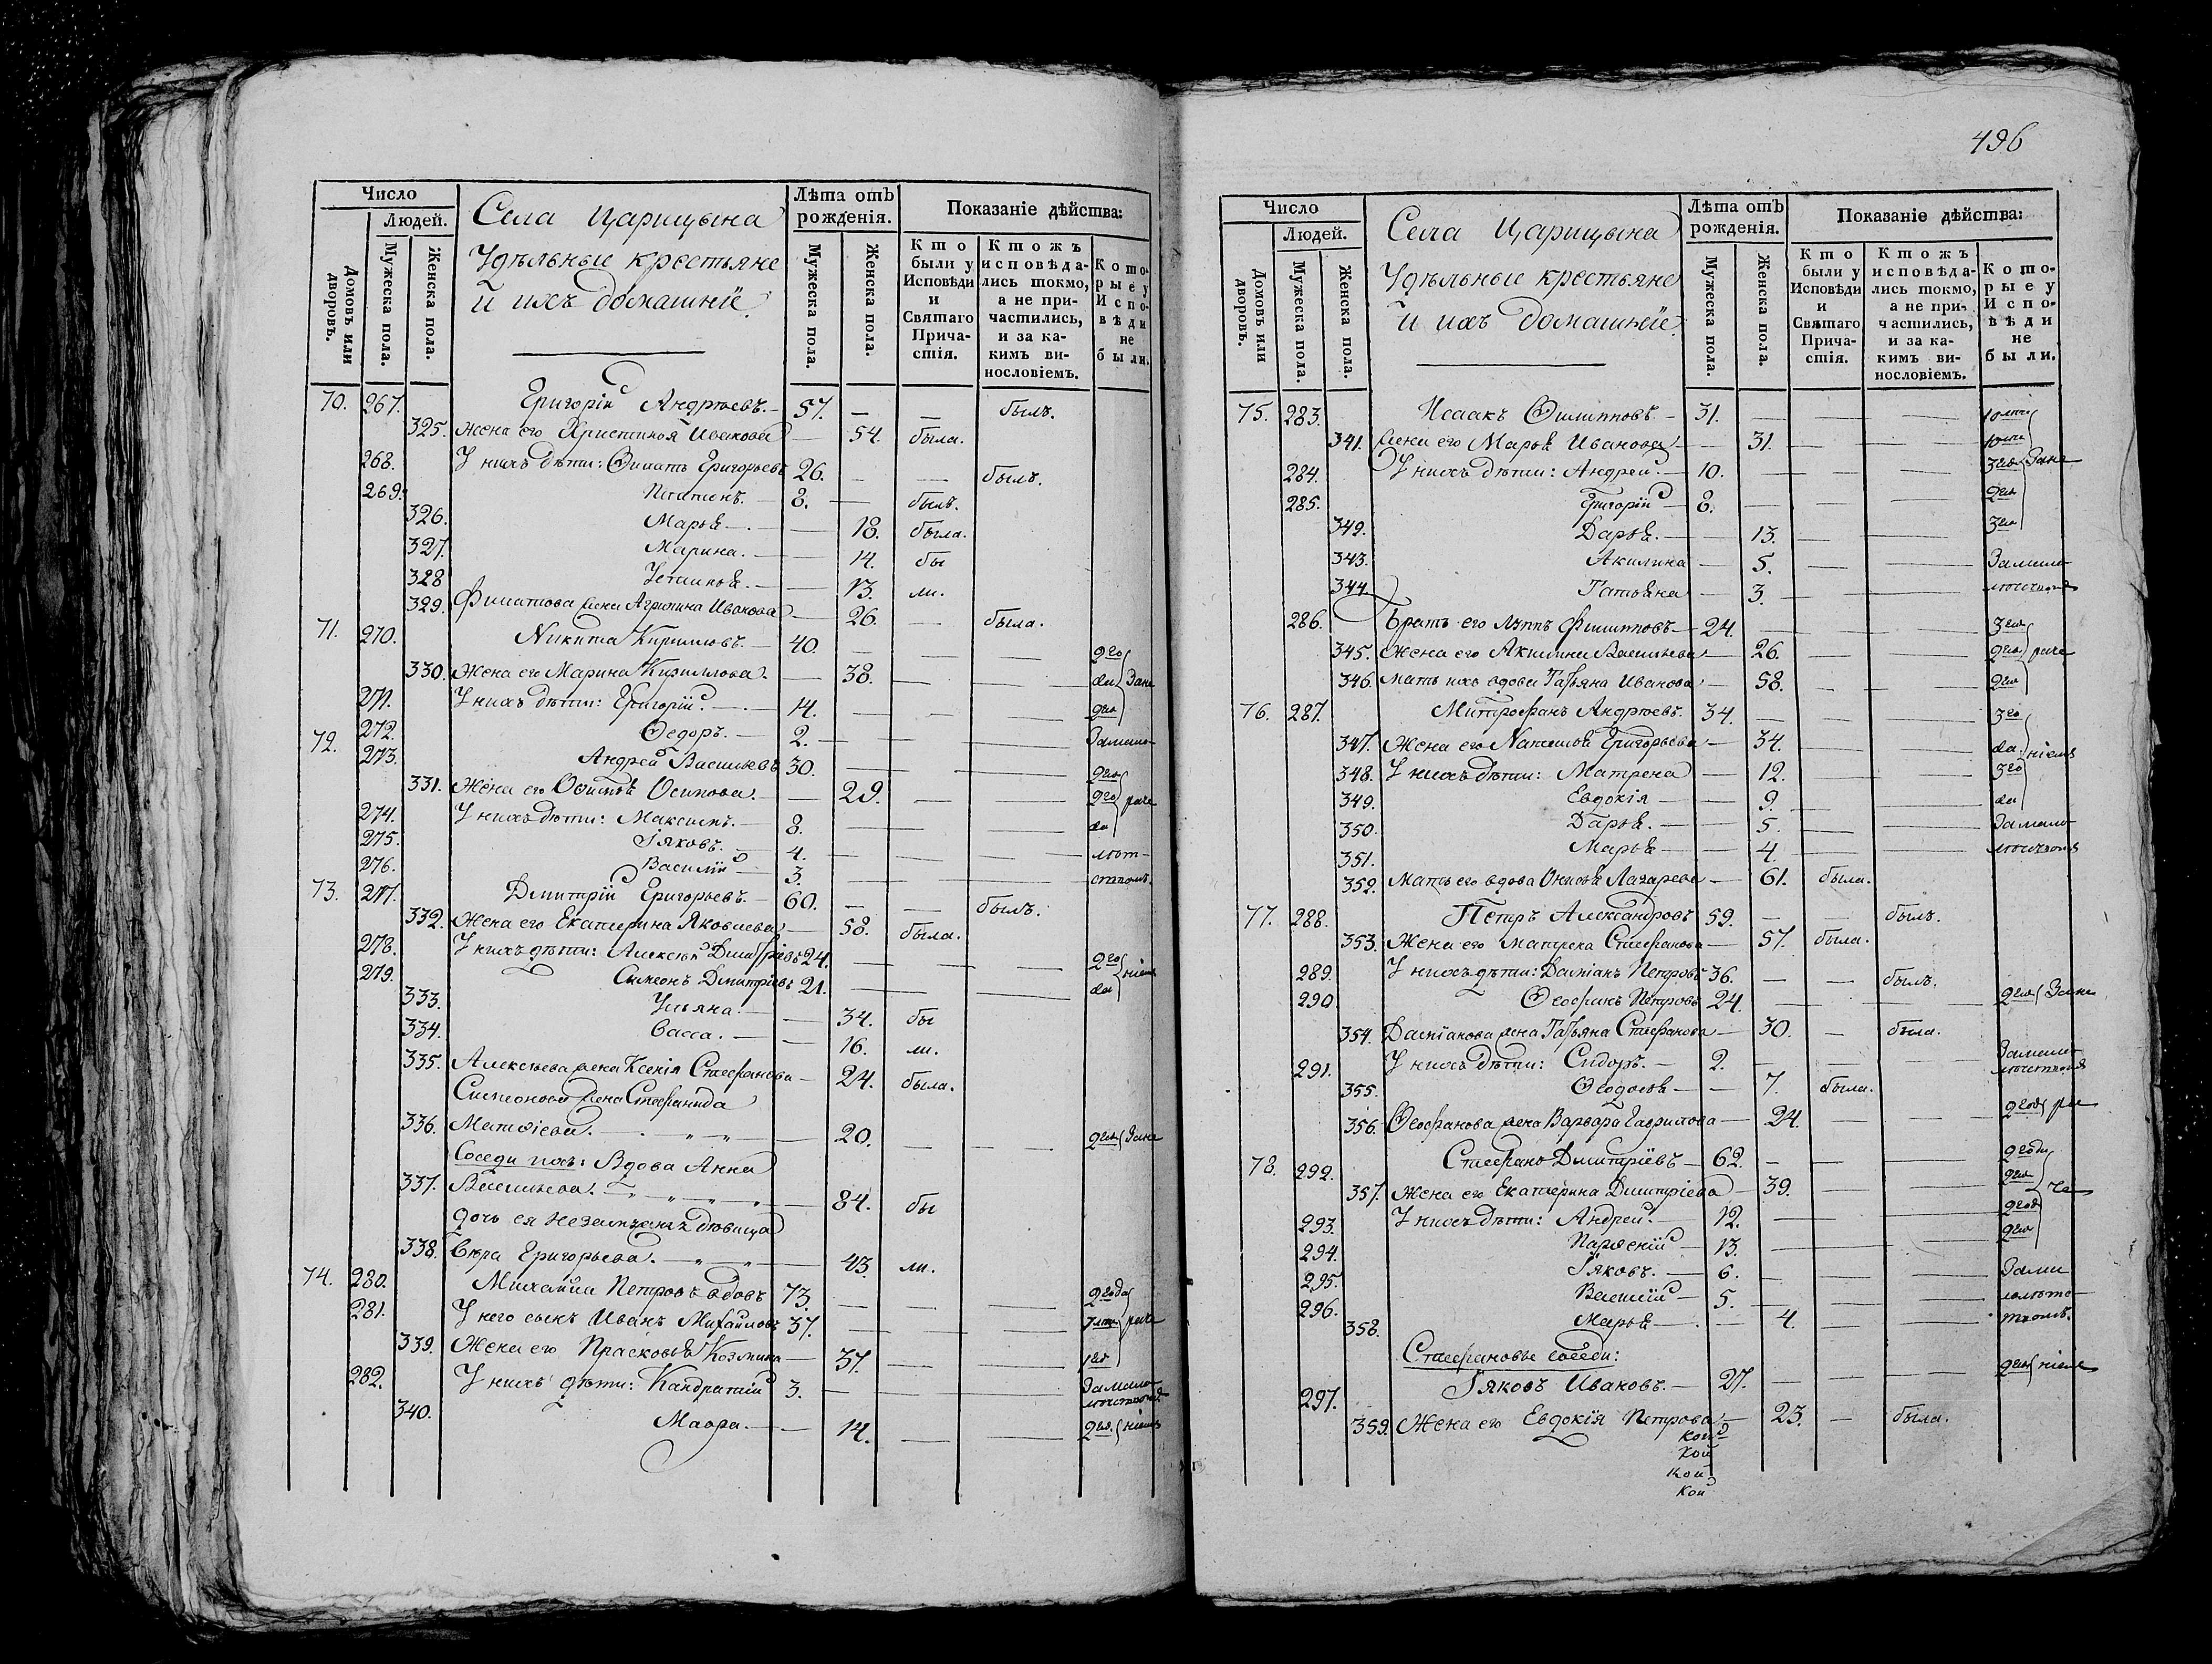 Число
Людей.
Домовъ или дворовъ.
Мужеска пола.
Женска пола.
Села Царицына
Удѣльные крестьяне
и ихъ домашнiе.
Лѣта отъ рожденiя.
Мужеска пола.
Женска пола.
Показанiе дѣйства:
Кто были у Исповѣди и Святаго Причастiя.
Ктожъ исповѣдались токмо, а не причастились, и за какимъ винословiемъ.
Которые у Исповѣди не были.
70. 267. Григорiй Андреевъ. 57. — — былъ.
325. Жена его Христинья Ивановa — 54. была.
268. У нихъ дѣти: Филатъ Григорьевъ 26. — — былъ.
269. Платонъ. 8. — былъ.
326. Марья — 18. была.
327. Марина. — 14. бы
328 Устинья. — 13. ли.
329. Филатова жена Агрипина Иванова — 26. — была.
71. 270. Никита Кириловъ. 40. — — —
330. Жена его Марина Кириллова. — 38. — — Зане
271. У нихъ дѣти: Григорiй. 14. — — —
272. Ѳедоръ. 2. — — — Замало
72. 273. Андрей Васильевъ 30. — — —
331. Жена его Осипова. — 29. — — раче
274. У нихъ дѣти: Максимъ. 8. — — —
275. Iяковъ. 4. — — — лѣт
276. Василiй 3. — — — ствомъ.
73. 277. Димитрiй Григорьевъ. 60. — — былъ.
332. Жена его Екатерина Яковлева — 58. была.
278. У нихъ дѣти: Алексѣй Димитрiевъ 24. — — — нiемъ
279. Симеонъ Димитрiевъ 21. — — —
333. Ульяна. — 34. бы
334. Васса. — 16. ли.
335. Алексѣева жена Ксенiя Стефанова — 24. была.
Симеонова жена Стефанида
336. Матѳiева. — 20. — — Зане
Соседи ихъ: Вдова Анна
337. Васильева. — 84. бы
дочь ея незамужня дѣвица
338. Вѣра Григорьева. — 43. ли.
74. 280. Михаила Петровъ вдовъ 73. — — —
281. У него сынъ Иванъ Михайловъ 37. — — — раче
339. Жена его Прасковья Козмина — 37. — —
282. У нихъ дѣти: Кандратiй 3. — — — Замало
340. Мавра. — 14. — — нiемъ
496
Число
Людей.
Домовъ или дворовъ.
Мужеска пола.
Женска пола.
Села Царицына
Удѣльные крестьяне
и ихъ домашнiе.
Лѣта отъ рожденiя.
Мужеска пола.
Женска пола.
Показанiе дѣйства:
Кто были у Исповѣди и Святаго Причастiя.
Ктожъ исповѣдались токмо, а не причастились, и за какимъ винословiемъ.
Которые у Исповѣди не были.
75. 283. Исаакъ Филипповъ. 31. — — —
341. Жена его Марья Иванова — 31. — —
284. У нихъ дѣти: Андрей. 10. — — — Зане
285. Григорiй 8. — — —
342. Дарья. — 13. — —
343. Акилина — 5. — — Замало
344. Татьяна — 3. — —
286. Братъ его Филипповъ 24. — — —
345. Жена его Акилина Васильева — 26. — — раче
346. Мать ихъ вдова Татьяна Иванова — 58. — —
76. 287. Митрофанъ Андреевъ. 34. — — —
347. Жена его Наталья Григорьева — 34. — — нiемъ
348. У нихъ дѣти: Матрена — 12. — —
349. Евдокiя — 9. — —
350. Дарья. — 5. — — Замало
351. Марья — 4. — —
352. Мать его вдова Онисья Лазарева — 61. была.
77. 288. Петръ Александровъ 59. — — былъ.
353. Жена его Матрена Стефанова — 57. была.
289. У нихъ дѣти: Дамiанъ Петровъ 36. — — былъ.
290. Ѳеофанъ Петровъ 24. — — — Зане
354. Дамiанова жена Татьяна Стефанова — 30. — была.
291. У нихъ дѣти: Сидоръ. 2. — — — Замало
355. Ѳеодосья — 7. была.
356. Ѳеофанова жена Варвара Гаврилова — 24. — — ра
78. 292. Стефанъ Димитрiевъ 62. — — —
357. Жена его Екатерина Димитрiева — 39. — — че
293. У нихъ дѣти: Андрей. 12. — — —
294. Парѳенiй 13. — — —
295. Iяковъ. 6. — — — Зама
296. Василiй 5. — — — лолѣтс
358. Марья — 4. — — твомъ.
Стефановы соседи:
297. Iяковъ Ивановъ. 27. — — — нiемъ
359. Жена его Евдокiя Петрова — 23. — была.
кой
кой
кой
кой